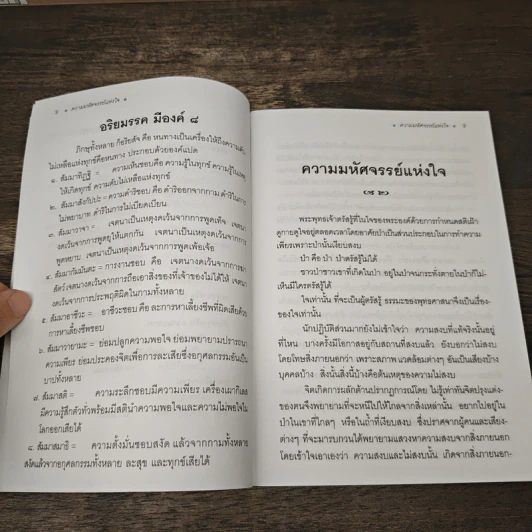 ๏ ความมหัศจรรย์แห่งใจ ๏
อริยมรรค มีองค์ ๘
ภิกษุทั้งหลาย ก็อริยสัจ คือ หนทางเป็นเครื่องให้ถึงความดับ
ไม่เหลือแห่งทุกข์คือหนทาง ประกอบด้วยองค์แปด
๑. สัมมาทิฏฐิ = ความเห็นชอบคือ ความรู้ในทุกข์ ความรู้ในเหตุ
ให้เกิดทุกข์ ความดับไม่เหลือแห่งทุกข์
๒. สัมมาสังกัปปะ = ความดำริชอบ คือ ดำริออกจากกาม ดำริในการ
ไม่พยาบาท ดำริในการไม่เบียดเบียน
๓. สัมมาวาจา = เจตนาเป็นเหตุงดเว้นจากการพูดเท็จ เจตนา
งดเว้นจากการพูดยุให้แตกกัน เจตนาเป็นเหตุงดเว้นจากการ
พูดหยาบ เจตนาเป็นเหตุงดเว้นจากการพูดเพ้อเจ้อ
๔. สัมมากัมมันตะ = การงานชอบ คือ เจตนางดเว้นจากการฆ่า
สัตว์ เจตนางดเว้นจากการถือเอาสิ่งของที่เจ้าของไม่ได้ให้ เจตนา
งดเว้นจากการประพฤติผิดในกามทั้งหลาย
๕. สัมมาอาชีวะ = อาชีวะชอบ คือ ละการหาเลี้ยงชีพที่ผิดเสียด้วย
การหาเลี้ยงชีพชอบ
๖. สัมมาวายามะ = ย่อมปลูกความพอใจ ย่อมพยายามปรารภ
ความเพียร ย่อมประคองจิตเพื่อการละเสียซึ่งอกุศลธรรมอันเป็น
บาปทั้งหลาย
๗. สัมมาสติ = ความระลึกชอบมีความเพียร เครื่องเผากิเลส
มีความรู้สึกตัวทั่วพร้อมมีสตินำความพอใจและความไม่พอใจใน
โลกออกเสียได้
๘. สัมมาสมาธิ = ความตั้งมั่นชอบสงัด แล้วจากกามทั้งหลาย
สงัดแล้วจากอกุศลกรรมทั้งหลาย ละสุข และทุกข์เสียได้
๏ ความมหัศจรรย์แห่งใจ ๏
ความมหัศจรรย์แห่งใจ
พระพุทธเจ้าตรัสรู้ที่ในใจของพระองค์ด้วยการกำหนดสติเฝ้า
ดูกายดูใจอยู่ตลอดเวลาโดยอาศัยป่าเป็นส่วนประกอบในการทำความ
เพียรเพราะป่านั้นเงียบสงบ
ป่า คือ ป่า ป่าตรัสรู้ไม่ได้
ชาวป่าชาวเขาที่เกิดในป่า อยู่ในป่าจนกระทั่งตายในป่าก็ไม่
เห็นมีใครตรัสรู้ได้
ใจเท่านั้น ที่จะเป็นผู้ตรัสรู้ ธรรมะของพุทธศาสนาจึงเป็นเรื่อง
ของใจเท่านั้น
นักปฏิบัติส่วนมากยังไม่เข้าใจว่า ความสงบที่แท้จริงนั้นอยู่
ที่ไหน บางครั้งมีโอกาสอยู่กับสถานที่สงบแล้ว ยังบอกว่าไม่สงบ
โดยโทษสิ่งภายนอกว่า เพราะสภาพแวดล้อมต่างๆ อันเป็นเสียงบ้าง
บุคคลบ้าง สิ่งนั้นสิ่งนี้บ้างคือต้นเหตุของความไม่สงบ
จิตเกิดการผลักต้านปรากฏการณ์โดย ไม่รู้เท่าทันจิตปรุงแต่ง
ของตนจึงพยายามที่จะหนีไปให้ไกลจากสิ่งเหล่านั้น อยากไปอยู่ใน
ป่าในเขาที่ไกลๆ หรือในถ้ำที่เงียบสงบ ซึ่งปราศจากผู้คนและเสียง
ต่างๆ ที่จะมารบกวนได้พยายามแสวงหาความสงบจากสิ่งภายนอก
โดยเข้าใจเอาเองว่า ความสงบและไม่สงบนั้น เกิดจากสิ่งภายนอก